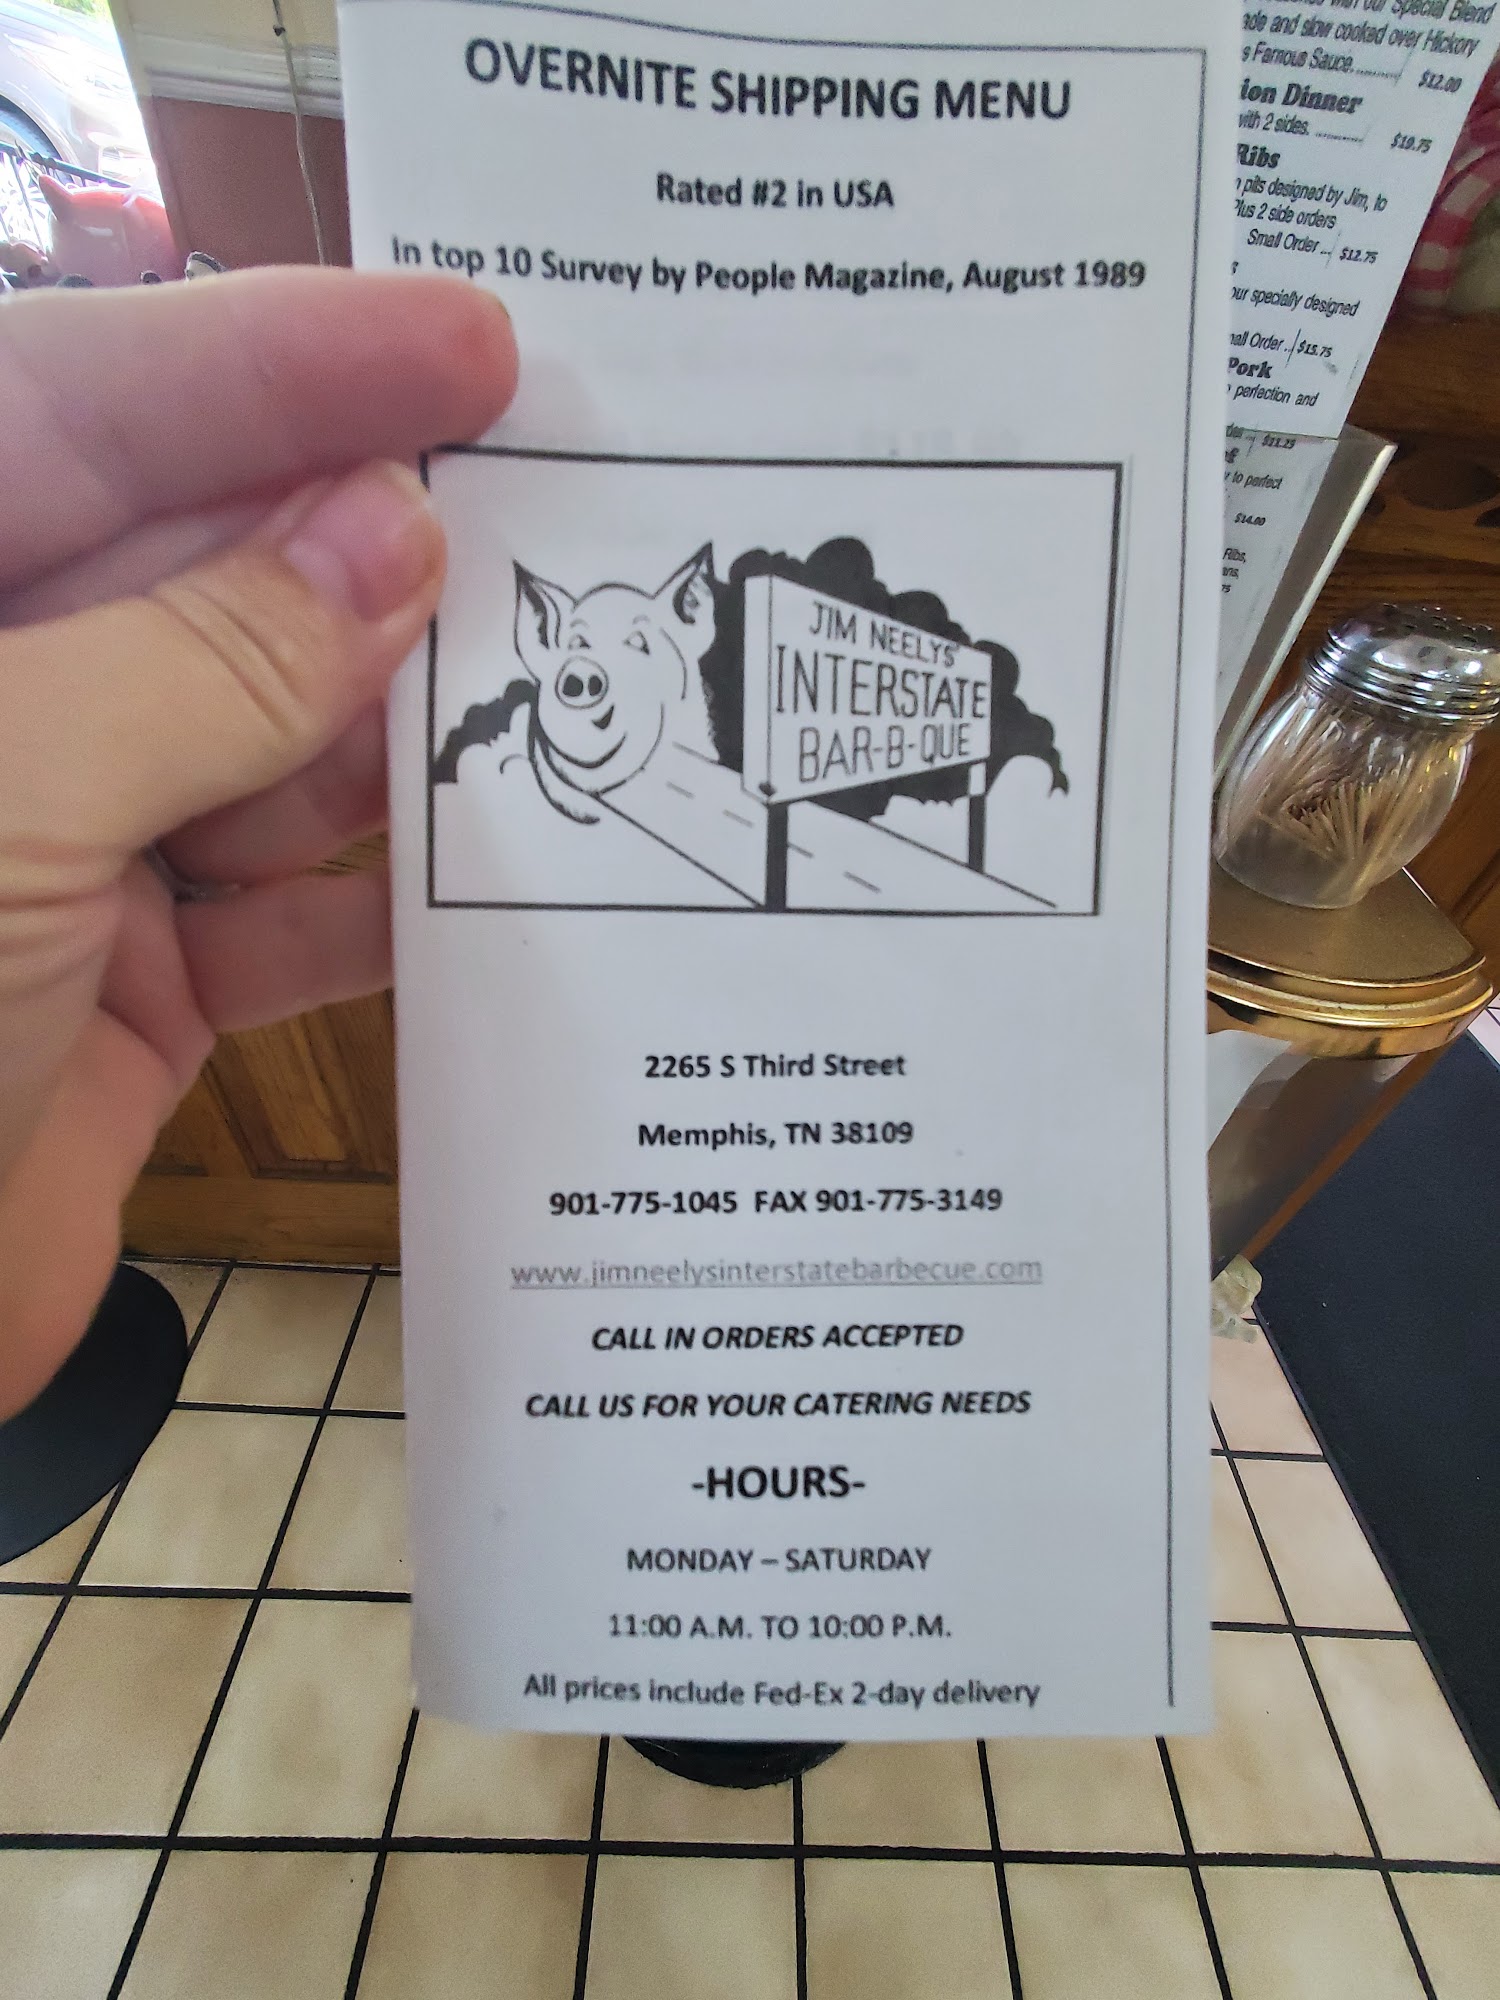 OVERNITE SHIPPING MENU
Rated #2 in USA
In top 10 Survey by People Magazine, August 1989
JIM NEELYS'
INTERSTATE
BAR-B-QUE
2265 S Third Street
Memphis, TN 38109
901-775-1045 FAX 901-775-3149
www.jimneelysinterstatebarbecue.com
CALL IN ORDERS ACCEPTED
CALL US FOR YOUR CATERING NEEDS
-HOURS-
MONDAY – SATURDAY
11:00 A.M. TO 10:00 P.M.
All prices include Fed-Ex 2-day delivery
our Special Blend
and slow cooked over Hickory
Famous Sauce............ $12.00
Dinner
with 2 sides. ............ $19.75
Ribs
pits designed by Jim, to
Plus 2 side orders
Small Order ... $12.75
our specially designed
Order .. $15.75
Pork
perfection and
$11.25
to perfect
$14.00
Ribs,